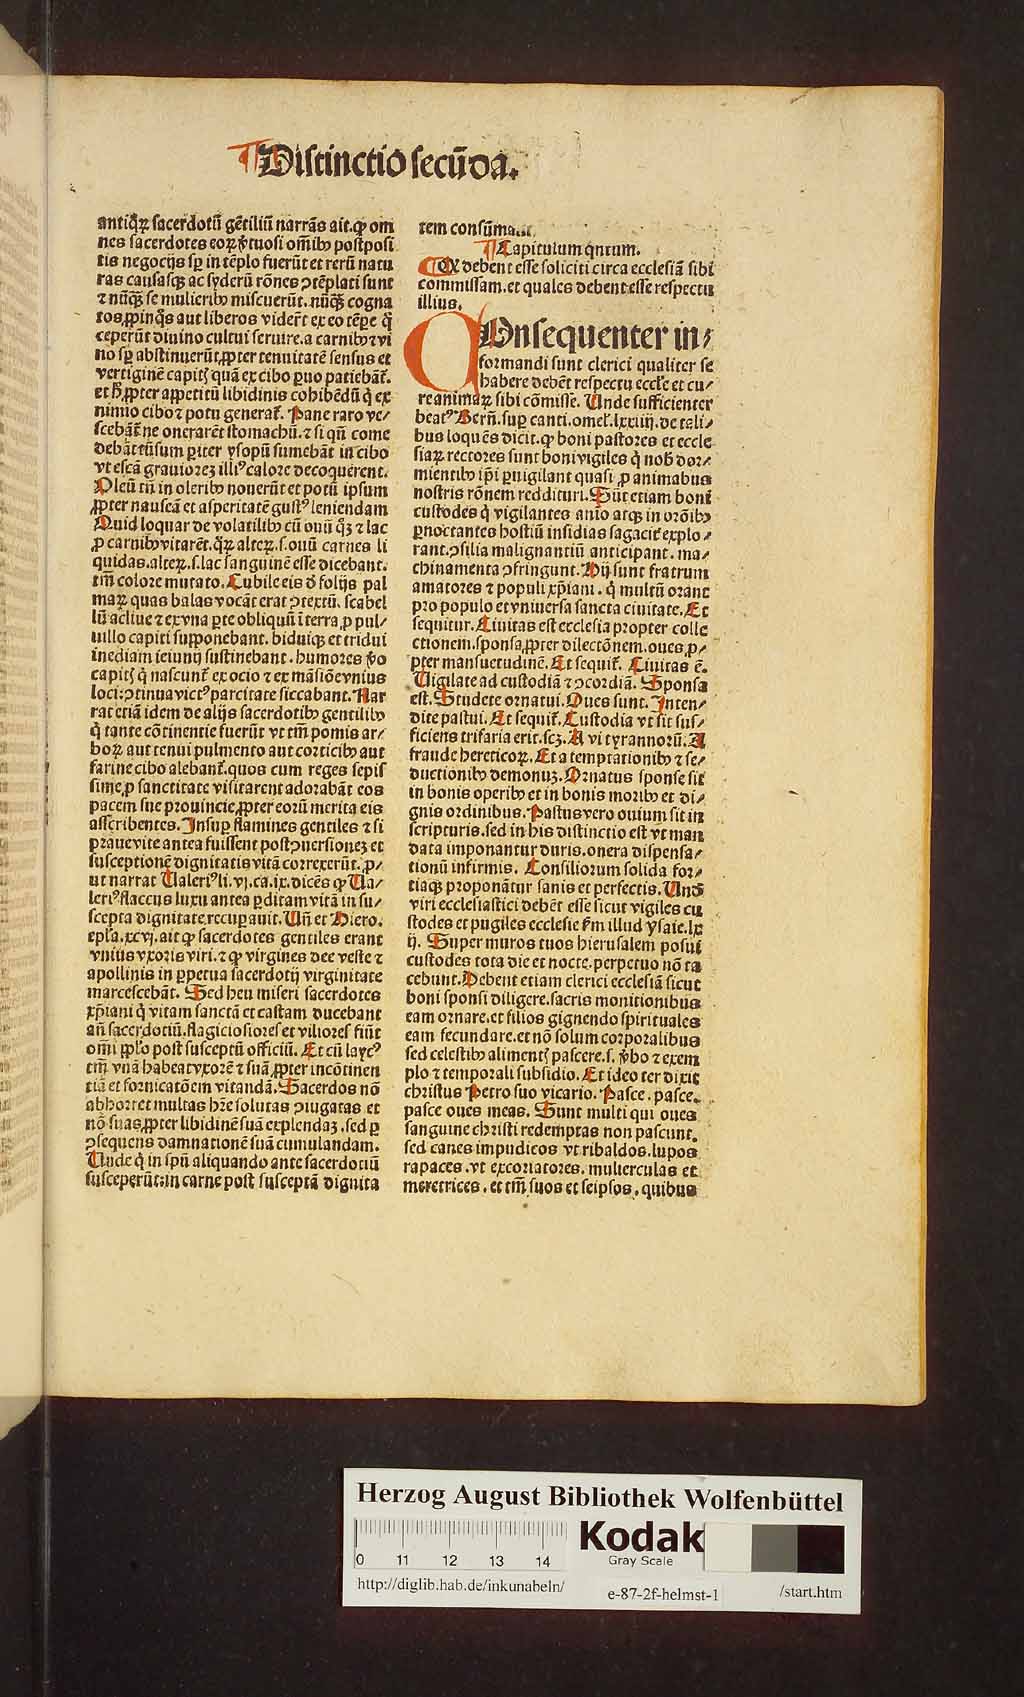 Distinctio secūda.
antiq̄ꝝ sacerdotū gētiliū narrās ait. ꝙ om
nes sacerdotes eoꝝ ꝟtuosi om̄ibꝰ postposi
tis negocijs sꝑ in tēplo fuerūt et rerū natu
ras causasqꝫ ac syderū rōnes ↄtēplati sunt
⁊ nūqꝫ se mulieribꝰ miscuerūt. nūqꝫ cogna
tos ꝓpinq̊s aut liberos viderūt ex eo tēpe q̊
ceperūt diuino cultui seruire. a carnibꝰ ⁊ vi
no sꝑ abstinuerūt ꝓpter tenuitatē sensus et
vertiginē capitꝭ quā ex cibo ꝑuo patiebāt᷑.
et h̄ ꝓpter appetitū libidinis cohibēdū q̄ ex
nimio cibo ⁊ potu generat᷑. Pane raro ve⸗
scebāt᷑ ne onerarēt stomachū. ⁊ si qn̄ come
debāt tūsum ꝑiter ysopū sumebāt in cibo
vt escā grauiorez illiꝰ calore decoquerent.
Oleū tn̄ in oleribꝰ nouerūt et potū ipsum
ꝓpter nauseā et asperitatē gustꝰ leniendam
Quid loquar de volatilibꝰ cū ouū qꝫ ⁊ lac
ꝓ carnibꝰ vitarēt. q̄ꝝ alteꝝ. s. ouū carnes li
quidas. alteꝝ. s. lac sanguinē esse dicebant.
tm̄ colore mutato. Cubile eis d̄ folijs pal
maꝝ quas balas vocāt erat ↄtextū. scabel
lū acliue ⁊ ex vna ꝑte obliquū ī terra ꝓ pul⸗
uillo capiti supponebant. biduiqꝫ et tridui
inediam ieiunij sustinebant. humores ꝟo
capitꝭ q̄ nascunt᷑ ex ocio ⁊ ex māsiōe vnius
loci: ↄtinua victꝰ parcitate siccabant. Nar
rat etiā idem de alijs sacerdotibꝰ gentilibꝰ
q̄ tante cōtinentie fuerūt vt tm̄ pomis ar⸗
boꝝ aut tenui pulmento aut corticibꝰ aut
farine cibo alebant᷑. quos cum reges sepis
sime ꝓ sanctitate visitarent adorabāt eos
pacem sue prouincie ꝓpter eorū merita eis
asscribentes. Insuꝑ flamines gentiles ⁊ si
praue vite antea fuissent post ↄuersionez et
susceptionē dignitatis vitā correxerūt. ꝓ⸗
ut narrat Valeriꝰ li. vj. ca. ix. dicēs ꝙ Va⸗
leriꝰ flaccus luxu antea ꝑditam vitā in su⸗
scepta dignitate recuꝑauit. Vn̄ et Hiero.
epl̄a. xcvj. ait ꝙ sacerdotes gentiles erant
vnius vxoris viri. ⁊ ꝙ virgines dee veste ⁊
apollinis in ꝑpetua sacerdotij virginitate
marcescebāt. Sed heu miseri sacerdotes
xp̄iani q̄ vitam sanctā et castam ducebant
an̄ sacerdotiū. flagiciosiores et viliores fiūt
om̄i pplo post susceptū officiū. Et cū laycꝰ
tm̄ vnā habeat vxorē ⁊ suā ꝓpter incōtinen
tiā et fornicatōem vitandā. Sacerdos nō
abhorret multas hr̄e solutas ↄiugatas et
nō suas ꝓpter libidinē suā explendaꝫ. sed ꝑ
ↄsequens damnationē suā cumulandam.
Unde q̄ in spū aliquando ante sacerdotiū
susceperūt: in carne post susceptā dignita
tem consūmant.
Capitulum qntum.
Qꝙ debent esse soliciti circa ecclesiā sibi
commissam. et quales debent esse respectu
illius.
COnsequenter in⸗
formandi sunt clerici qualiter se
habere debēt respectu eccl̄e et cu⸗
re animaꝝ sibi cōmisse. Unde sufficienter
beatꝰ Bern̄. suꝑ canti. omel̓. lxxiiij. de tali⸗
bus loquēs dicit. ꝙ boni pastores et eccle
siaꝝ rectores sunt boni vigiles q̄ nob̄ dor⸗
mientibꝰ ip̄i ꝑuigilant quasi ꝓ animabus
nostris rōnem reddituri. Sūt etiam boni
custodes q̄ vigilantes anīo atqꝫ in orōibꝰ
ꝑnoctantes hostiū insidias sagacit᷑ explo⸗
rant. ↄsilia malignantiū anticipant. ma⸗
chinamenta ↄfringunt. Hij sunt fratrum
amatores ⁊ populi xp̄iani. q̄ multū orant
pro populo et vniuersa sancta ciuitate. Et
sequitur. Ciuitas est ecclesia propter colle
ctionem. sponsa ꝓpter dilectōnem. oues ꝓ⸗
pter mansuetudinē. Et sequit᷑. Ciuitas ē.
Vigilate ad custodiā ⁊ ↄcordiā. Sponsa
est. Studete ornatui. Oues sunt. Inten⸗
dite pastui. Et sequit᷑. Custodia vt sit suf⸗
ficiens trifaria erit. scꝫ. A vi tyrannorū. A
fraude hereticoꝝ. Et a temptationibꝰ ⁊ se⸗
ductionibꝰ demonuꝫ. Ornatus sponse sit
in bonis operibꝰ et in bonis moribꝰ et di⸗
gnis ordinibus. Pastus vero ouium sit in
scripturis. sed in his distinctio est vt man
data imponantur duris. onera dispensa⸗
tionū infirmis. Consiliorum solida for⸗
tiaqꝫ proponātur sanis et perfectis. Und̄
viri ecclesiastici debēt esse sicut vigiles cu
stodes et pugiles ecclesie ẜm illud ysaie. lx
ij. Super muros tuos hierusalem posui
custodes tota die et nocte. perpetuo nō ta
cebunt. Debent etiam clerici ecclesiā sicut
boni sponsi diligere. sacris monitionibus
eam ornare. et filios gignendo spirituales
eam fecundare. et nō solum corporalibus
sed celestibꝰ alimentꝭ pascere. s. ꝟbo ⁊ exem
plo ⁊ temporali subsidio. Et ideo ter dixit
christus Petro suo vicario. Pasce. pasce.
pasce oues meas. Sunt multi qui oues
sanguine christi redemptas non pascunt.
sed canes impudicos vt ribaldos. lupos
rapaces. vt excoriatores. mulierculas et
meretrices. et tm̄ suos et seipsos. quibus
Herzog August Bibliothek Wolfenbüttel
Kodak
Gray Scale
0 11 12 13 14
http://diglib.hab.de/inkunabeln/
e-87-2f-helmst-1
/start.htm